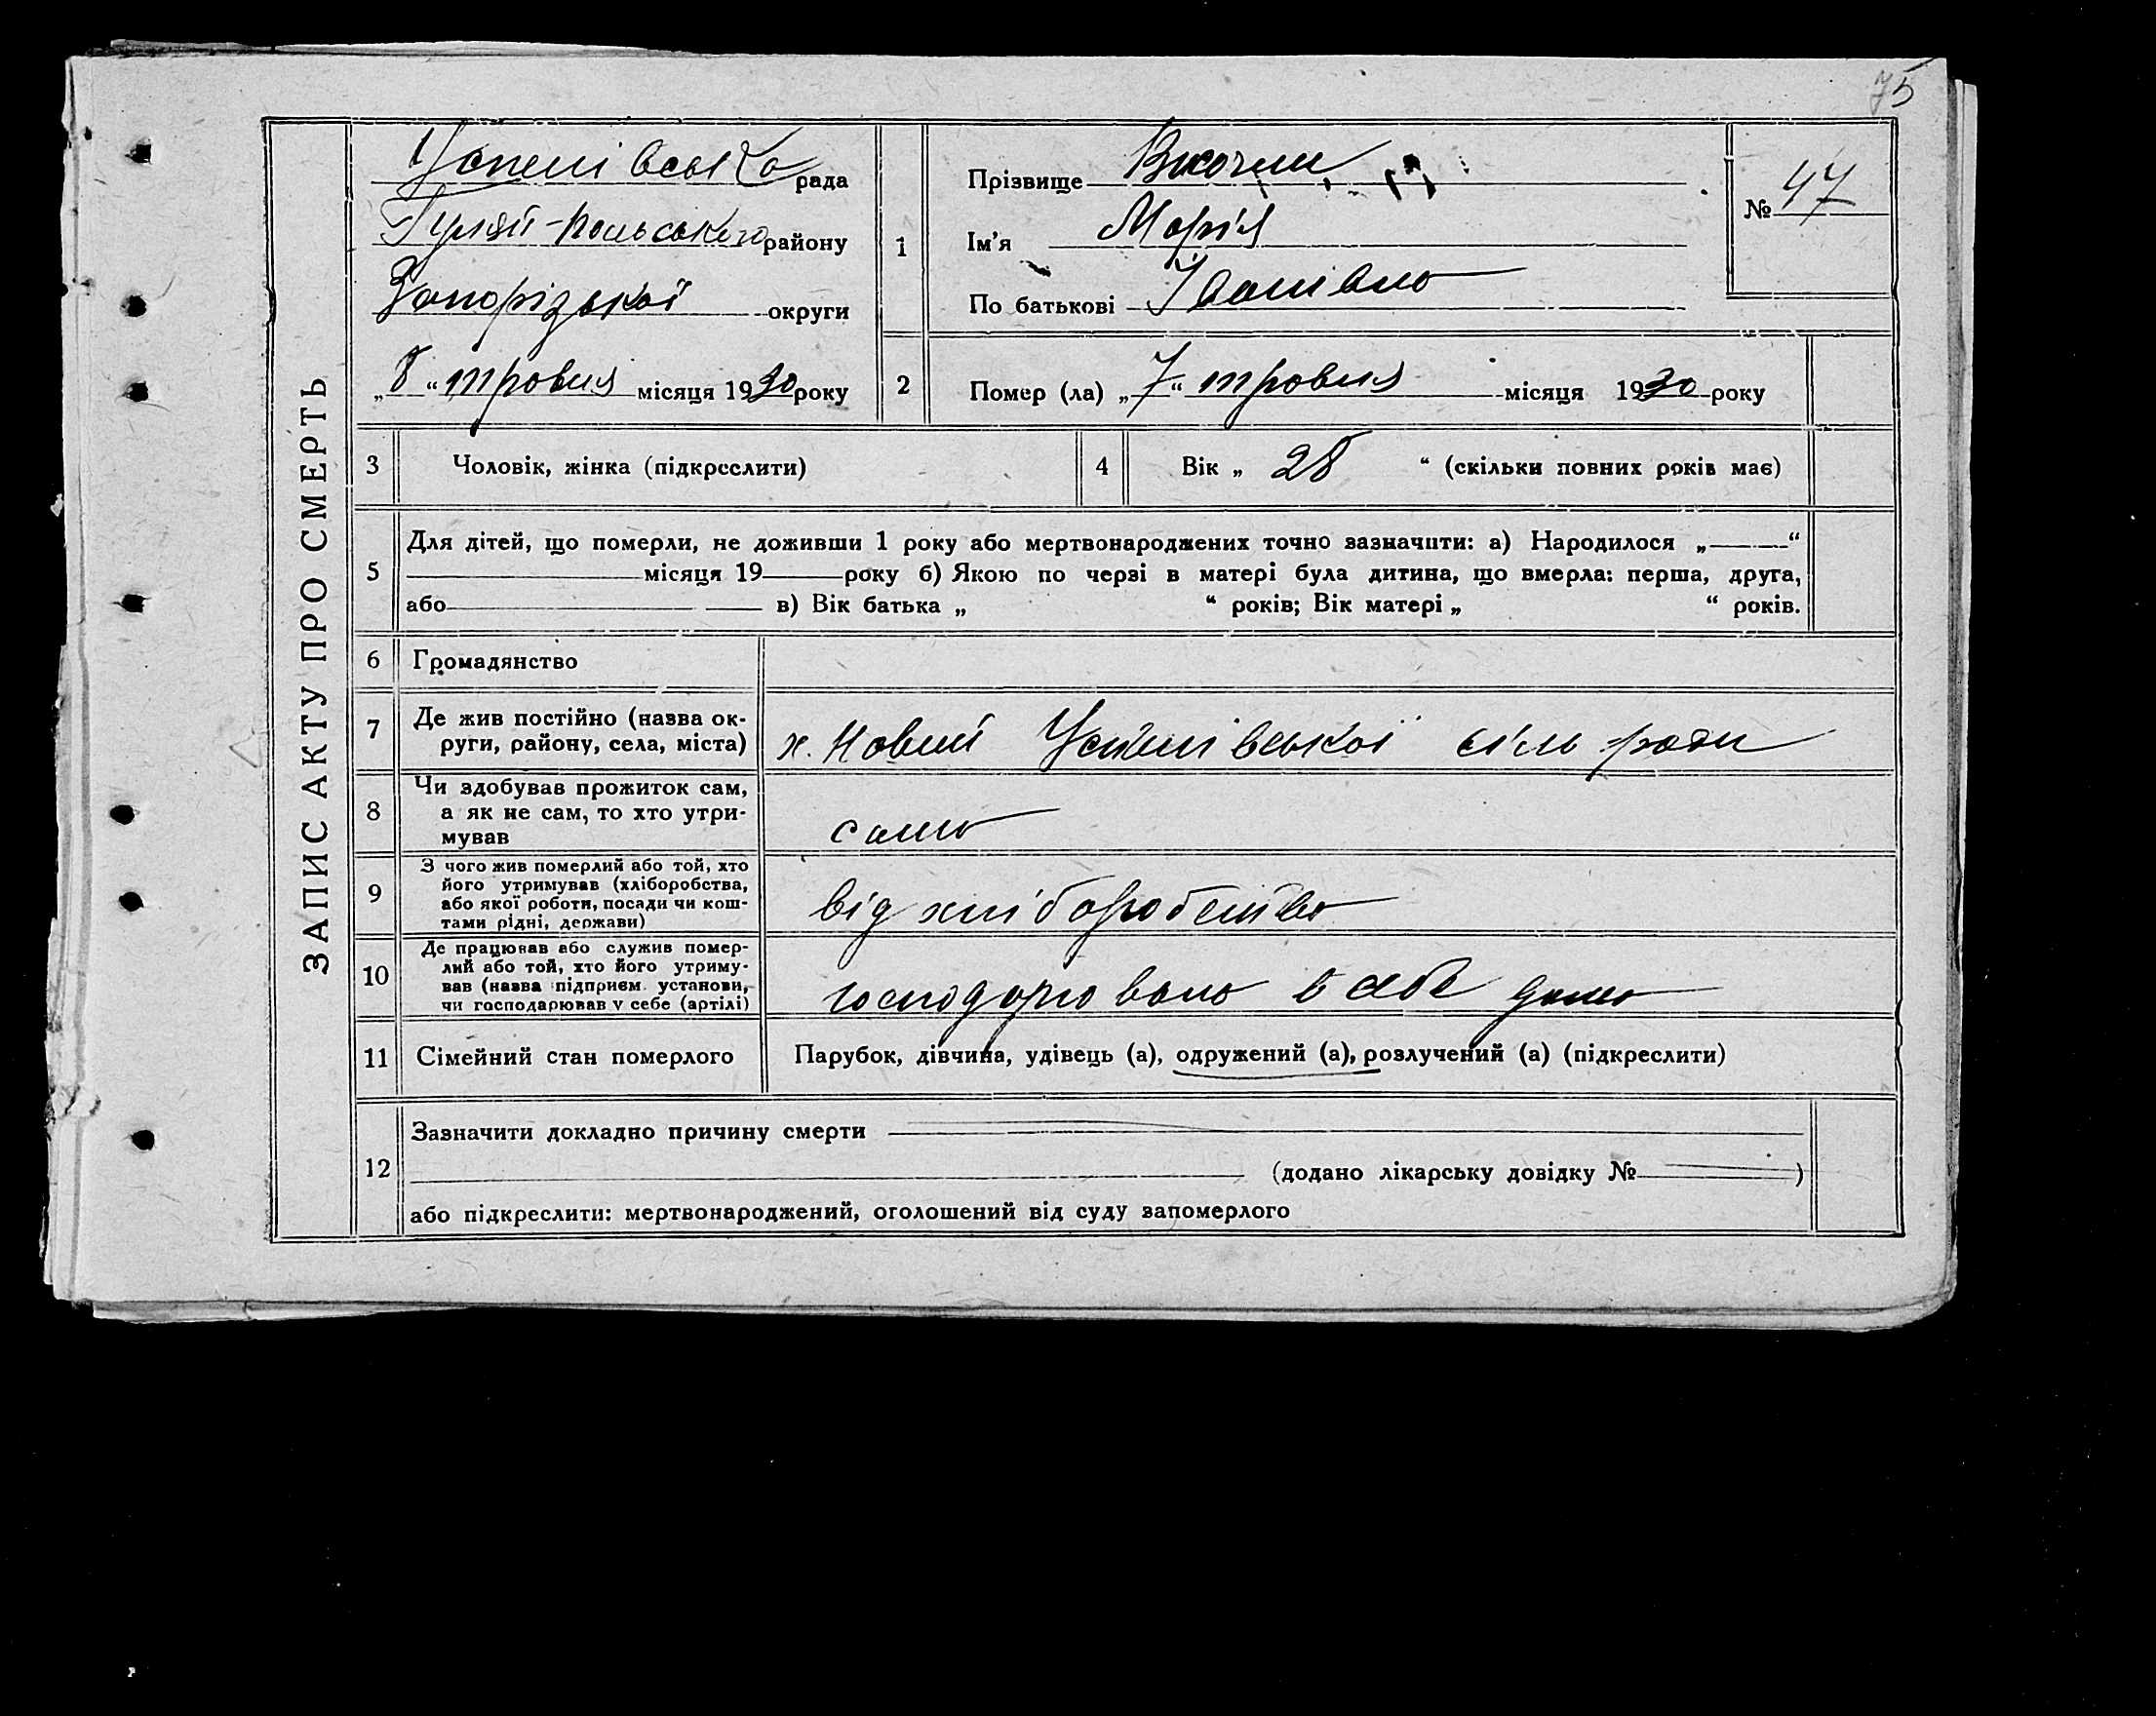 75
ЗАПИС АКТУ ПРО СМЕРТЬ
Успенівська рада
Гуляй-Польського району
Запорізької округи
„8“ травня місяця 1930 року
1
Прізвище
Ім'я Марія
По батькові Іванівна
№ 47
2
Помер (ла) „7“ травня місяця 1930 року
3
Чоловік, жінка (підкреслити)
4
Вік „ 28 “ (скільки повних років має)
5
Для дітей, що померли, не доживши 1 року або мертвонароджених точно зазначити: а) Народилося „ “
місяця 19 року б) Якою по черзі в матері була дитина, що вмерла: перша, друга,
або в) Вік батька „ “ років; Вік матері „ “ років.
6
Громадянство
7
Де жив постійно (назва ок-
руги, району, села, міста)
х. Новий Успенівської сіль ради
8
Чи здобував прожиток сам,
а як не сам, то хто утри-
мував
сама
9
З чого жив померлий або той, хто
його утримував (хліборобства,
або якої роботи, посади чи кош-
тами рідні, держави)
від хліборобства
10
Де працював або служив помер-
лий або той, хто його утриму-
вав (назва підприєм. установи,
чи господарював у себе (артілі)
господарювала в себе дома
11
Сімейний стан померлого
Парубок, дівчина, удівець (а), одружений (а), розлучений (а) (підкреслити)
12
Зазначити докладно причину смерти
(додано лікарську довідку № )
або підкреслити: мертвонароджений, оголошений від суду запомерлого